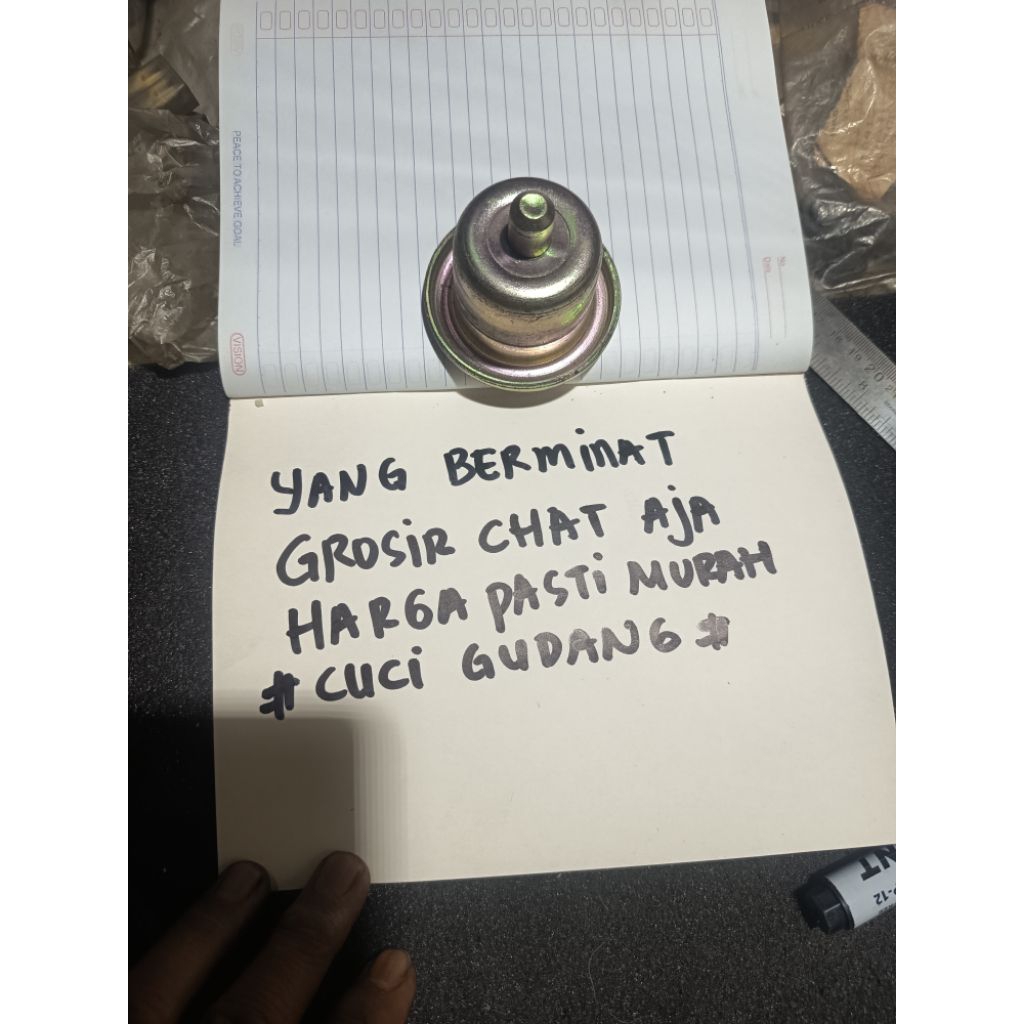 PEACE TO ACHIEVE GOAL
VISION
No
Date
18 19 20
8
YANG BERMINAT
GROSIR CHAT AJA
HARGA PASTI MURAH
# CUCI GUDANG #
P-12